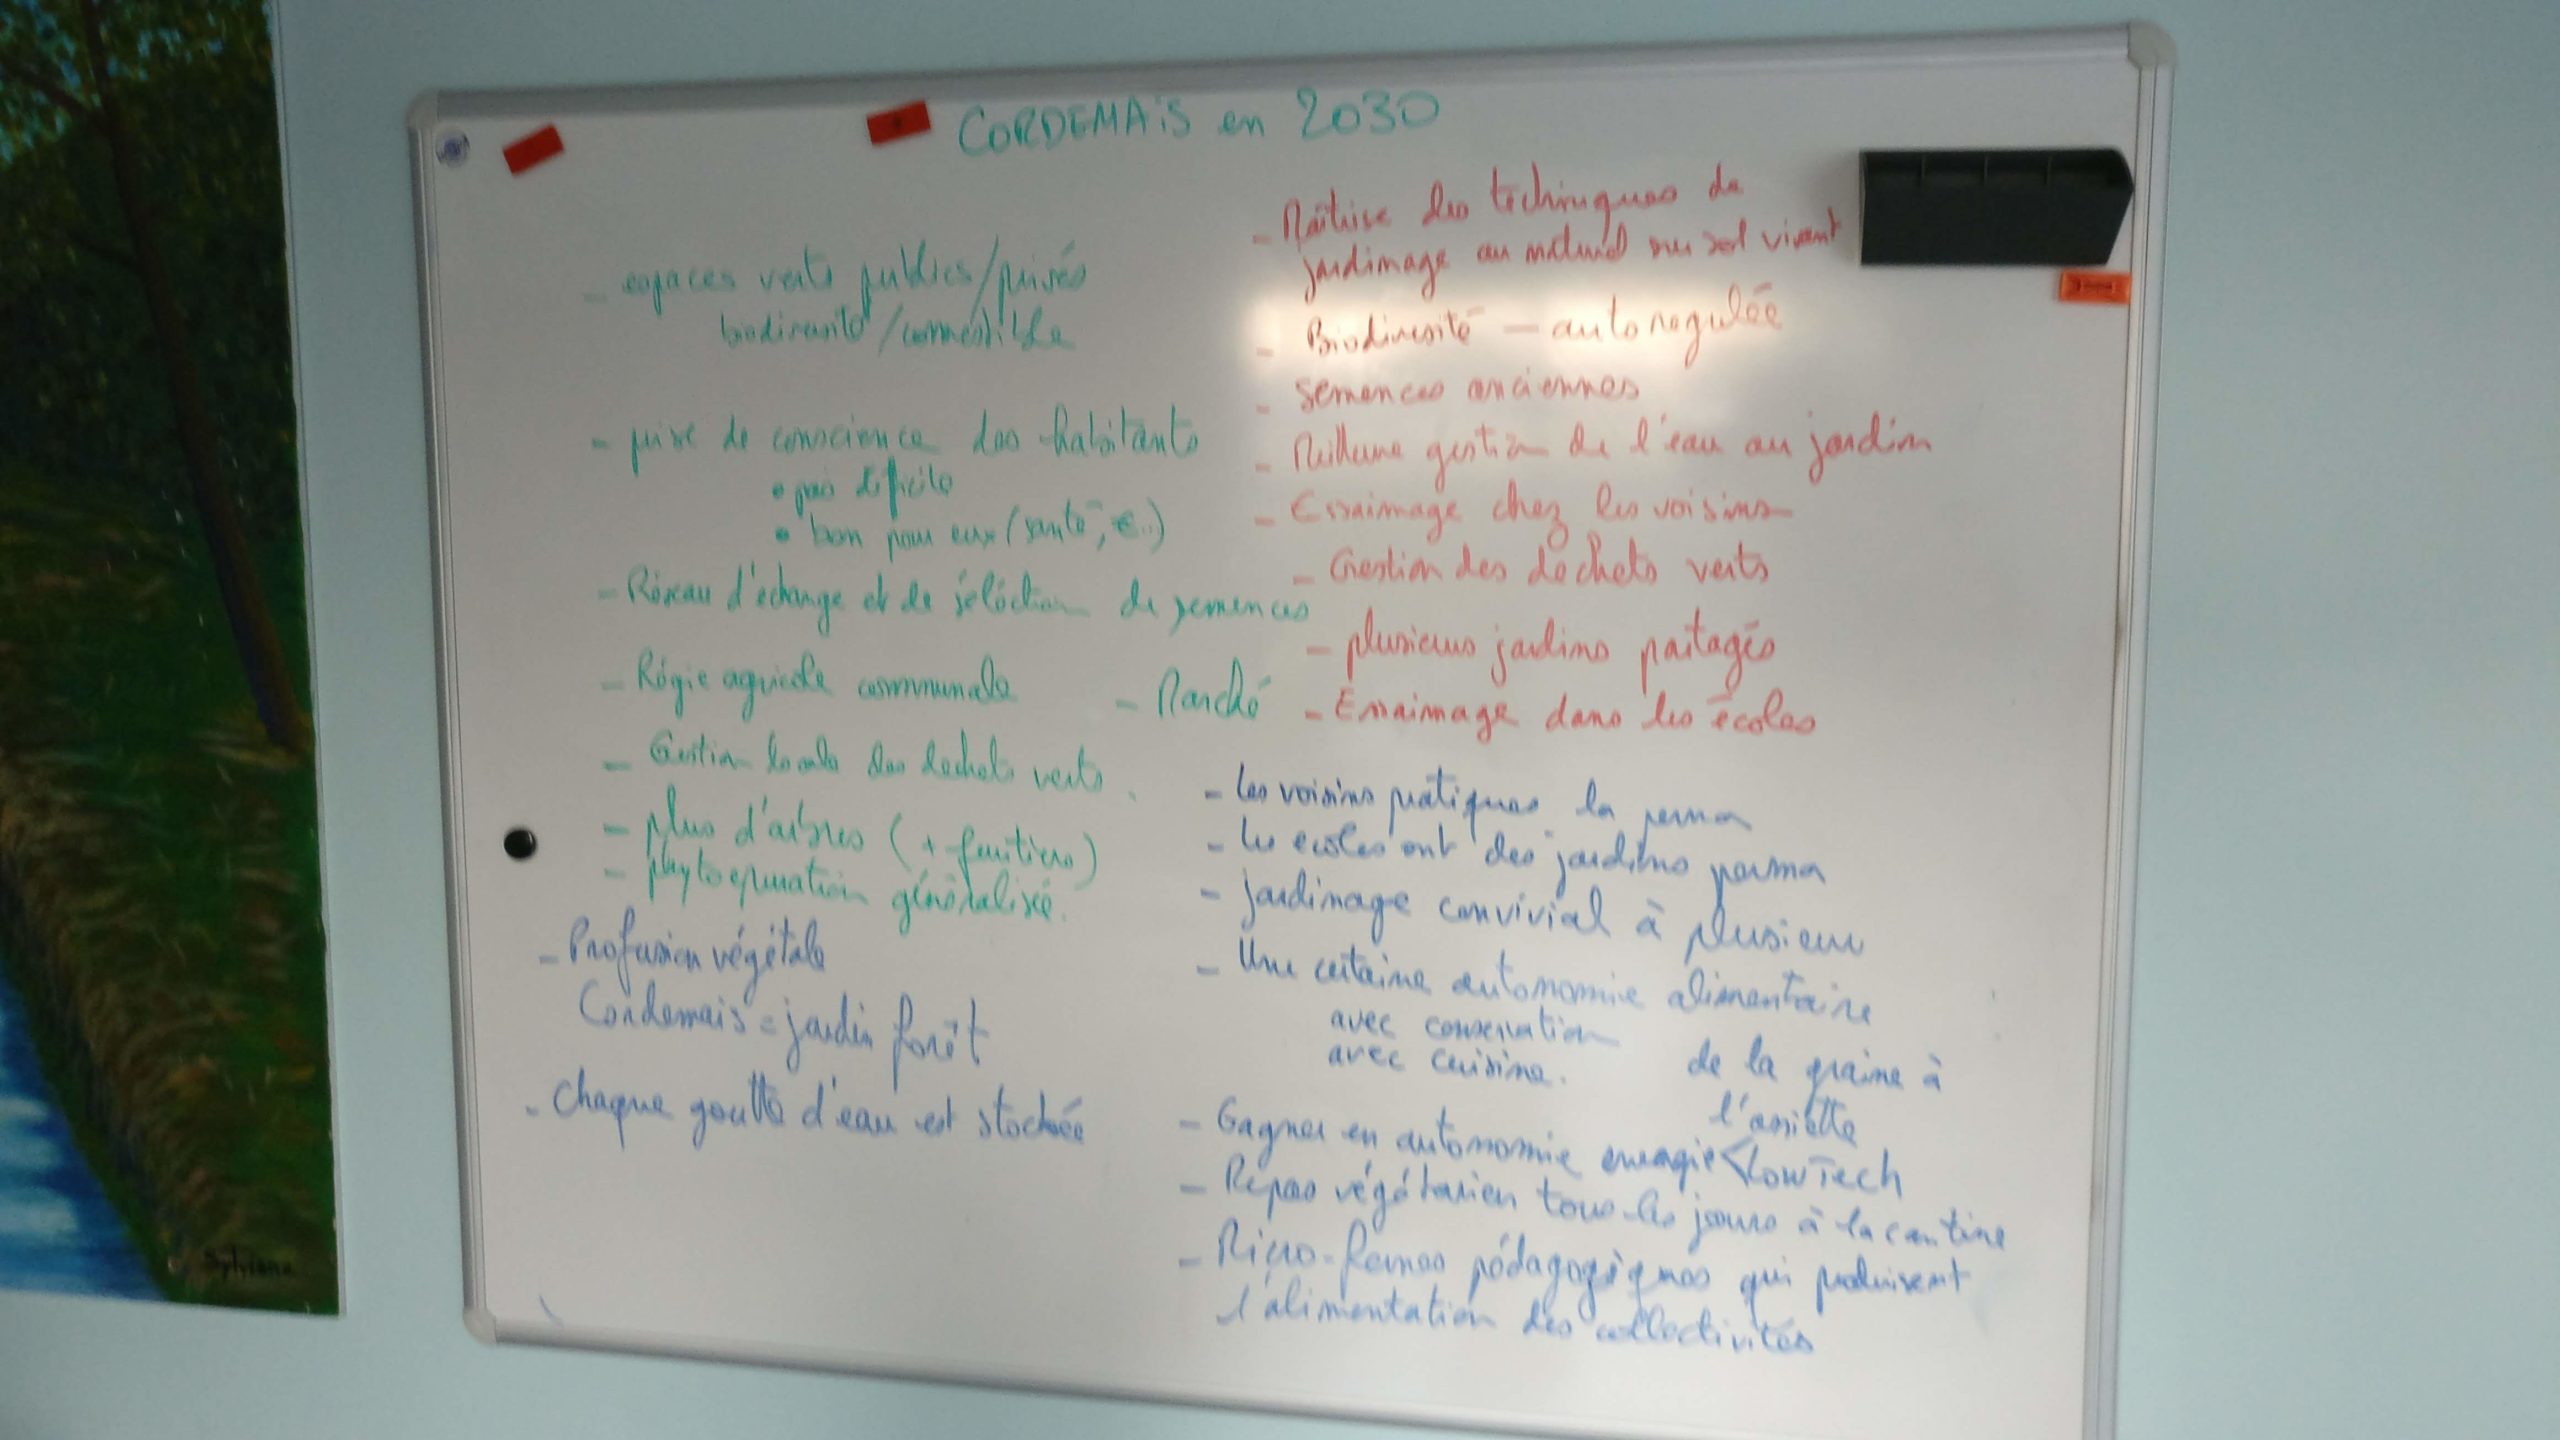 CORDEMAiS en 2030
- espaces verts publics/privés
biodiversité/comestible
- prise de conscience des habitants
• pas dificile
• bon pour eux (santé, €...)
- Réseau d'échange et de sélection de semences
- Régie agricole communale
- Marché
- Gestion locale des déchets verts.
- plus d'arbres (+ fruitiers)
- phytoépuration généralisée.
- Profusion végétale
Cordemais = jardin forêt
- Chaque goutte d'eau est stockée
- Maîtrise des techniques de
jardinage au naturel sur sol vivant
- Biodiversité — autorégulée
- Semences anciennes
- Meilleure gestion de l'eau au jardin
- Essaimage chez les voisins
- Gestion des déchets verts
- plusieurs jardins partagés
- Essaimage dans les écoles
- Les voisins pratiques la perma
- les écoles ont des jardins perma
- jardinage convivial à plusieur
- Une certaine autonomie alimentaire
avec conservation
avec cuisine.
de la graine à
l'assiette
- Gagner en autonomie énergie < LowTech
- Repas végétarien tous les jours à la cantine
- Micro-fermes pédagogiques qui produisent
l'alimentation des collectivités
Sylviane